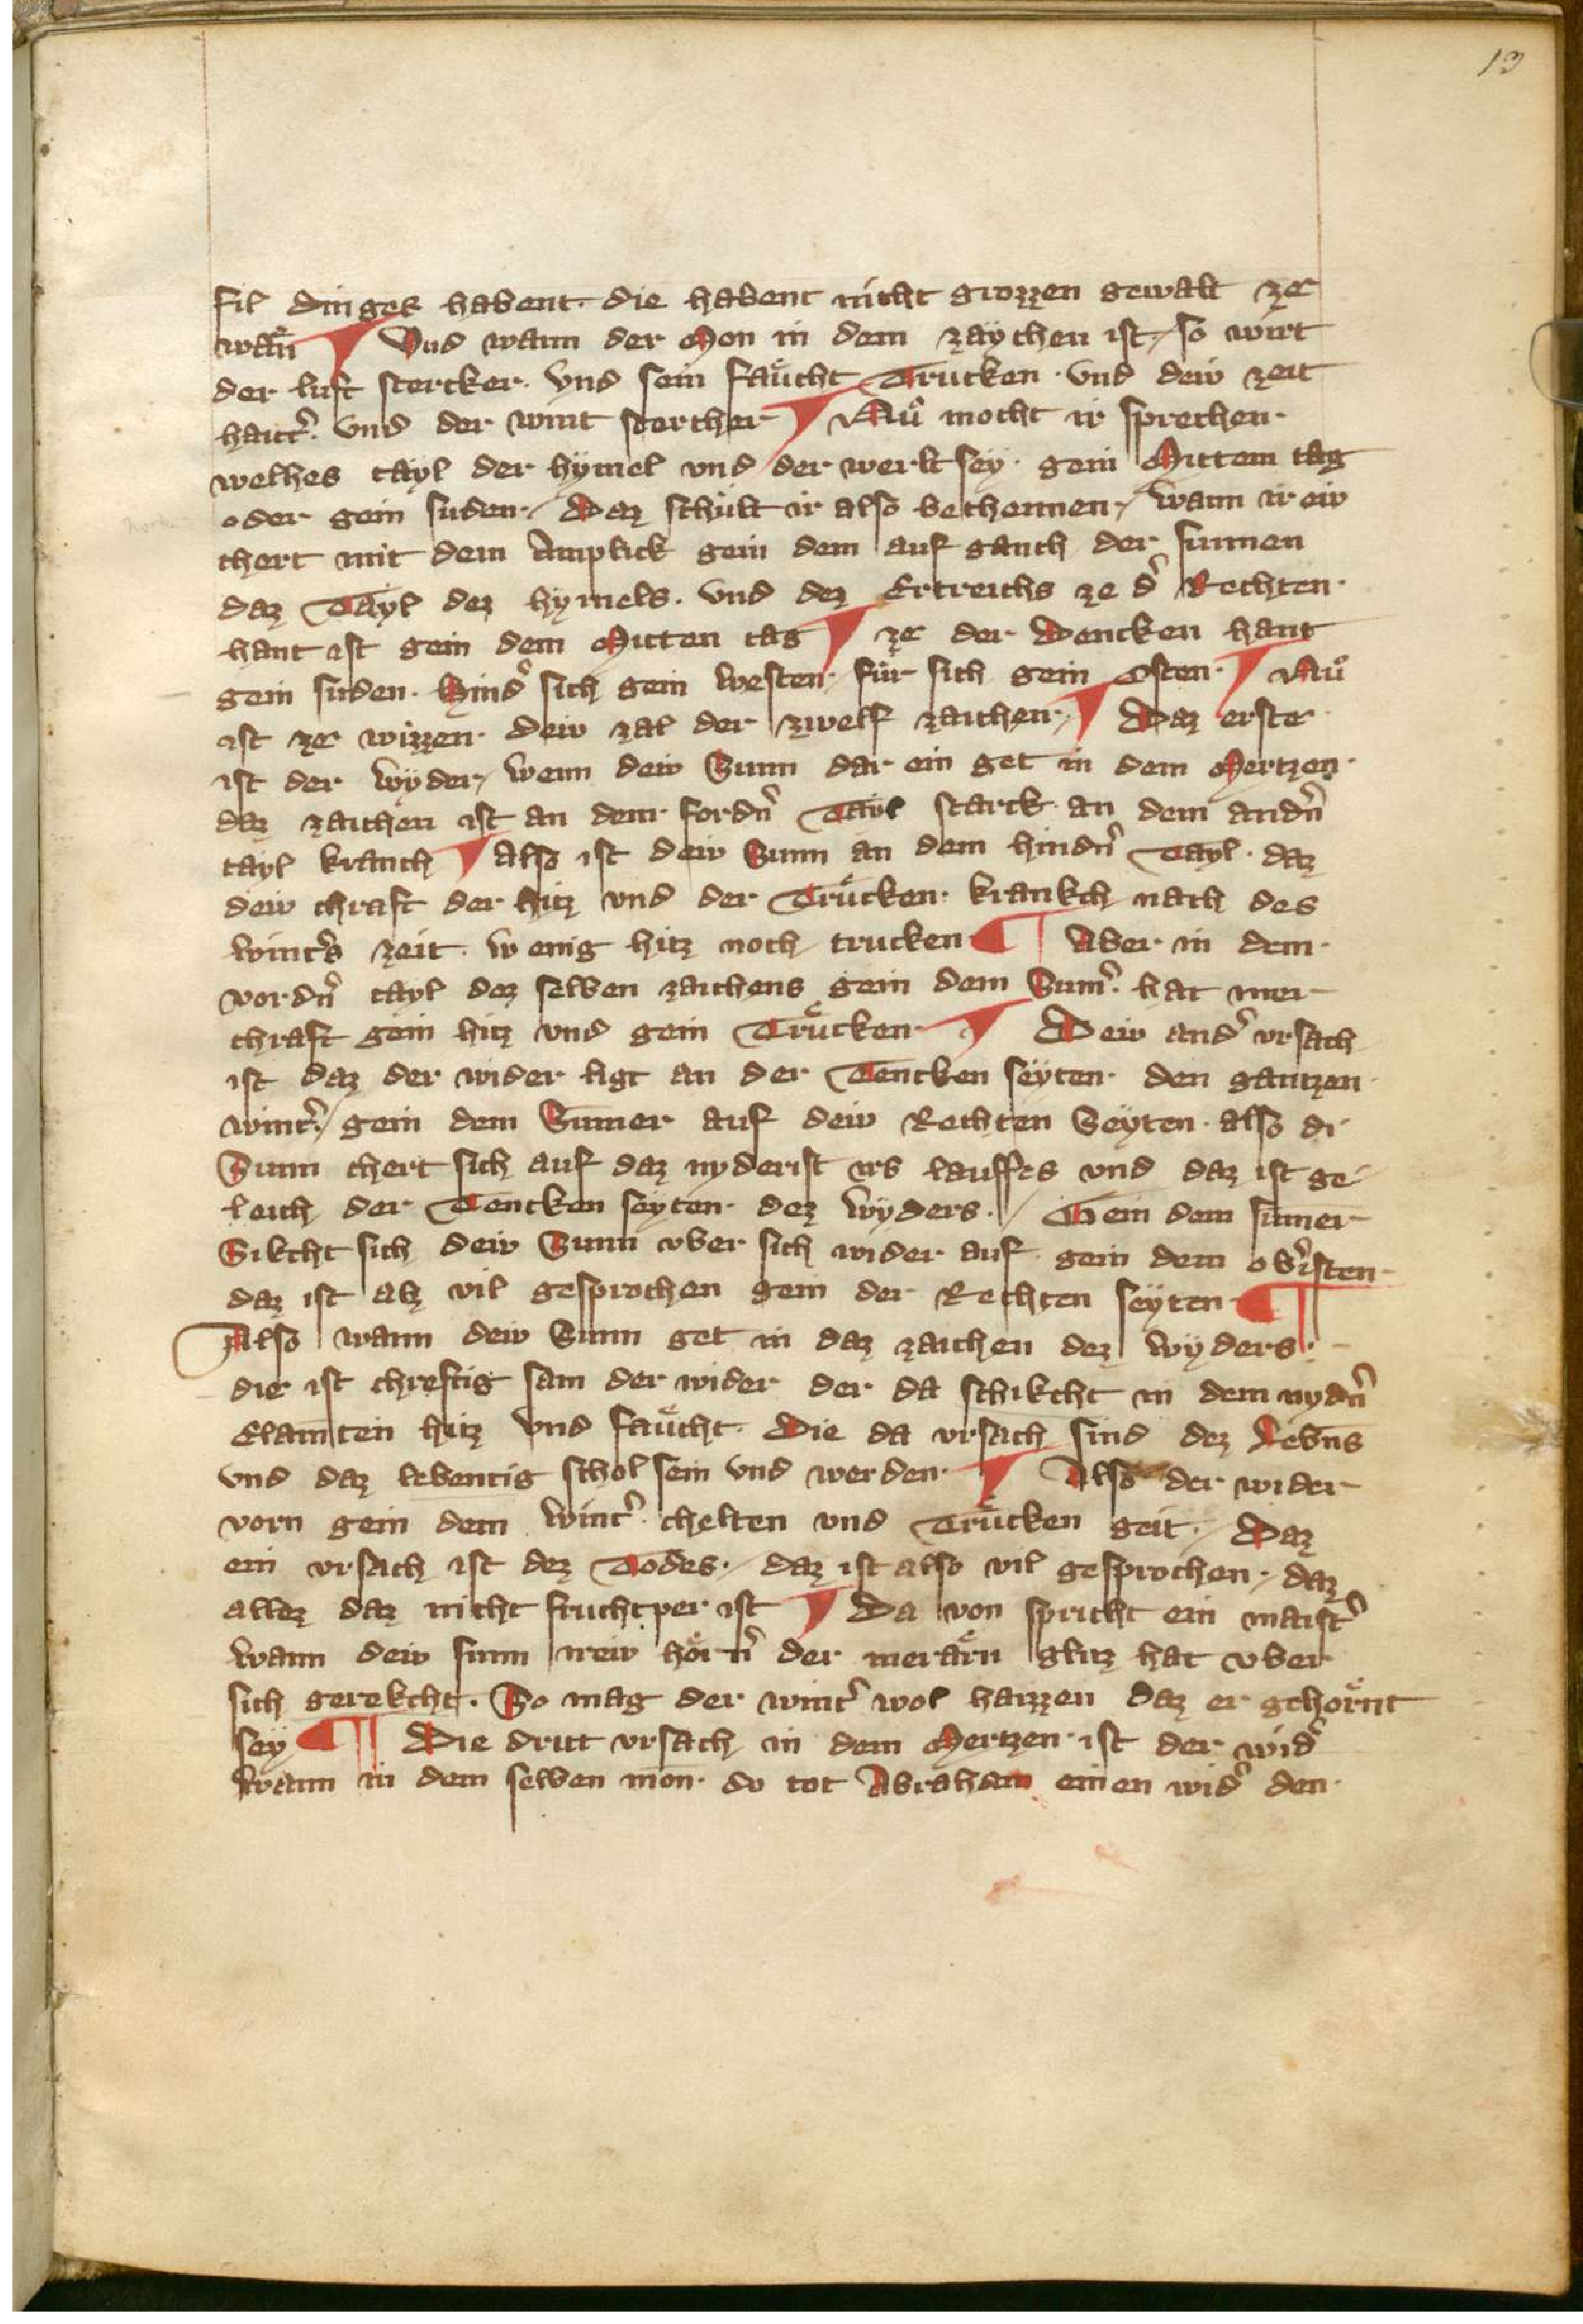 13
fil dinges habent die habent nicht grozzen gewalt ze
wäͤn ¶ Vnd wann der Mon in dem zaychen ist / so wirt
der luft stercker. vnd sein faͤucht Trucken. vnd dew zeit
haitt͛. vnd der wint sterkher ¶ Nuͦ mocht ir sprechen.
welhes tayl der hymel vnd der werlt seÿ. gein Mittem tag
oder gein suden. / Daz schült ir also bechennen. / wann ir ew
chert mit dem Anplick gein dem auf ganch der sunnen
daz Tayl dez hymels. vnd dez Ertreichs ze d͛ Rechten.
hant ist gein dem Mitten tag ¶ ze der Dencken hant
gein suden. Hind͛ sich gein westen. für sich gein Osten. ¶ Nuͦ
ist ze wizzen. dew zal der zwelf zaichen. / ¶ Daz erste
ist der wÿder / wenn dew Sunn dar ein get in dem Mertzen.
daz zaichen ist an dem fordn͛ Tayl starck an dem andn͛
tayl kranch ¶ Also ist dew Sunn an dem hindn͛ Tayl. daz
dew chraft der hitz vnd der Truͤcken. krankch nach des
wint͛s zeit. wenig hitz noch trucken ¶ Aber in dem.
vordn͛ tayl dez selben zaichens gein dem Sum͛. hat mer
chraft gein hitz vnd gein Truͤcken. ¶ Dew and͛ vrsach
ist daz der wider ligt an der Tencken seÿten. den gantzen
wint͛. / gein dem Sumer auf dew Rechten Seÿten. also di
Sunn chert sich auf daz nyderist irs lauffes vnd daz ist ge
leich der Tencken seyten. dez wÿders. / Gein dem sumer
Sikcht sich dew Sunn vber sich wider auf gein dem ob͛isten.
daz ist alz vil gesprochen gein der Rechten seÿten ¶
Also wann dew Sunn get in daz zaichen dez wÿders.
die ist chreftig sam der wider der da schikcht in dem nydn͛
Elamten hitz vnd faͤucht. Die da vrsach sind dez Lebns
vnd daz lebentig schol sein vnd werden. ¶ Also der wider
vorn gein dem wint͛. chelten vnd Truͤcken geit. / Daz
ein vrsach ist dez Todes. / daz ist also vil gesprochen. / daz
allez daz nicht fruchtper ist ¶ Da von spricht ein maist͛
wann dew sunn irew hoͤrn͛ der meraͤrn glitz hat vber
sich gerekcht. So mag der wint͛ wol haizzen daz er gehoͤrnt
seÿ ¶ Die dritt vrsach in dem Mertzen. ist der wid͛
wann in dem selben mon. do tot Abraham einen wid͛ den.